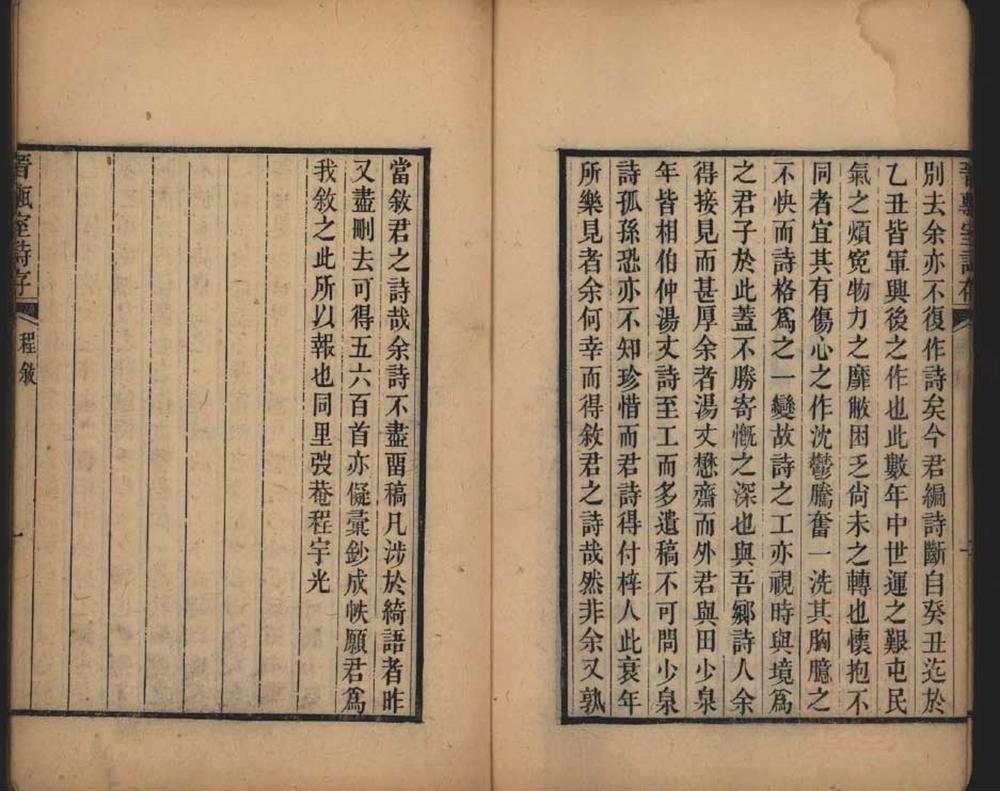 別去余亦不復作詩矣今君編詩斷自癸丑迄於
乙丑皆軍興後之作也此數年中世運之艱屯民
氣之煩寃物力之靡敝困乏尙未之轉也懷抱不
同者宜其有傷心之作沈鬱騰奮一洗其胸臆之
不快而詩格爲之一變故詩之工亦視時與境爲
之君子於此蓋不勝寄慨之深也與吾鄉詩人余
得接見而甚厚余者湯丈懋齋而外君與田少泉
年皆相伯仲湯丈詩至工而多遺稿不可問少泉
詩孤孫恐亦不知珍惜而君詩得付梓人此衰年
所樂見者余何幸而得敘君之詩哉然非余又孰
當敘君之詩哉余詩不盡畱稿凡涉於綺語者昨
又盡刪去可得五六百首亦儗彙鈔成帙願君爲
我敘之此所以報也同里弢菴程宇光
室詩存
程敘
一